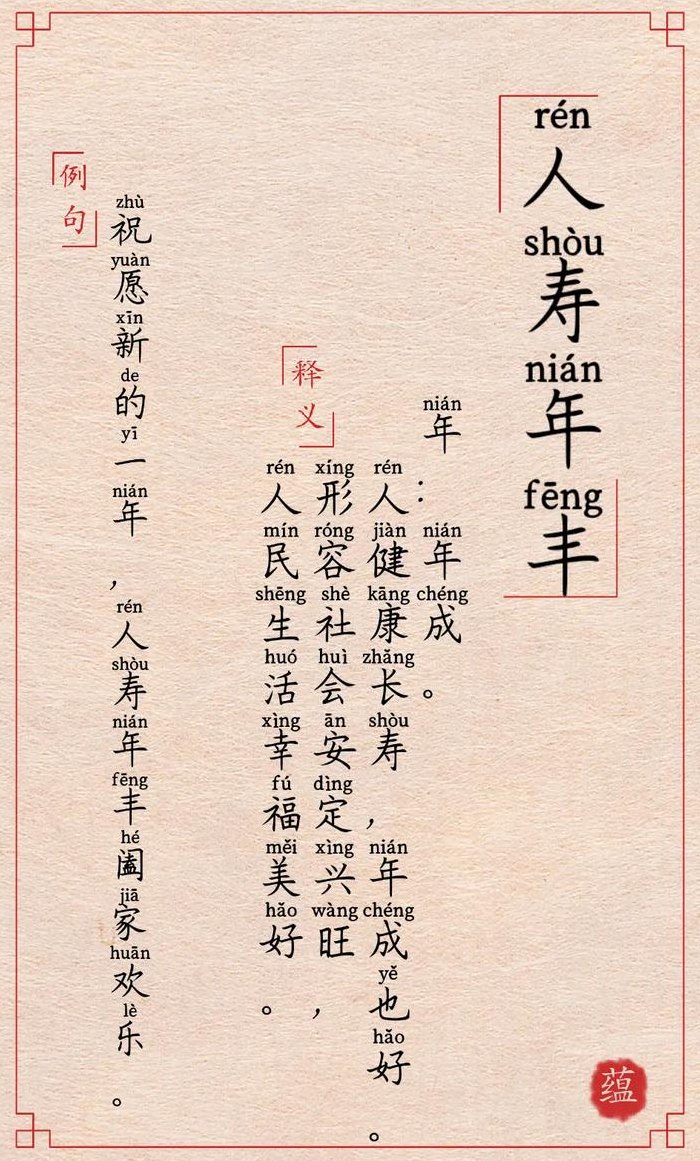 rén shòu nián fēng
人寿年丰
释义
nián nián chéng
年：年成。
rén jiàn kāng zhǎng shòu nián chéng yě hǎo
人健康长寿，年成也好。
xíng róng shè huì ān dìng xìng wàng
形容社会安定兴旺，
rén mín shēng huó xìng fú měi hǎo
人民生活幸福美好。
例句
zhù yuàn xīn de yī nián rén shòu nián fēng hé jiā huān lè
祝愿新的一年，人寿年丰阖家欢乐。
蕴